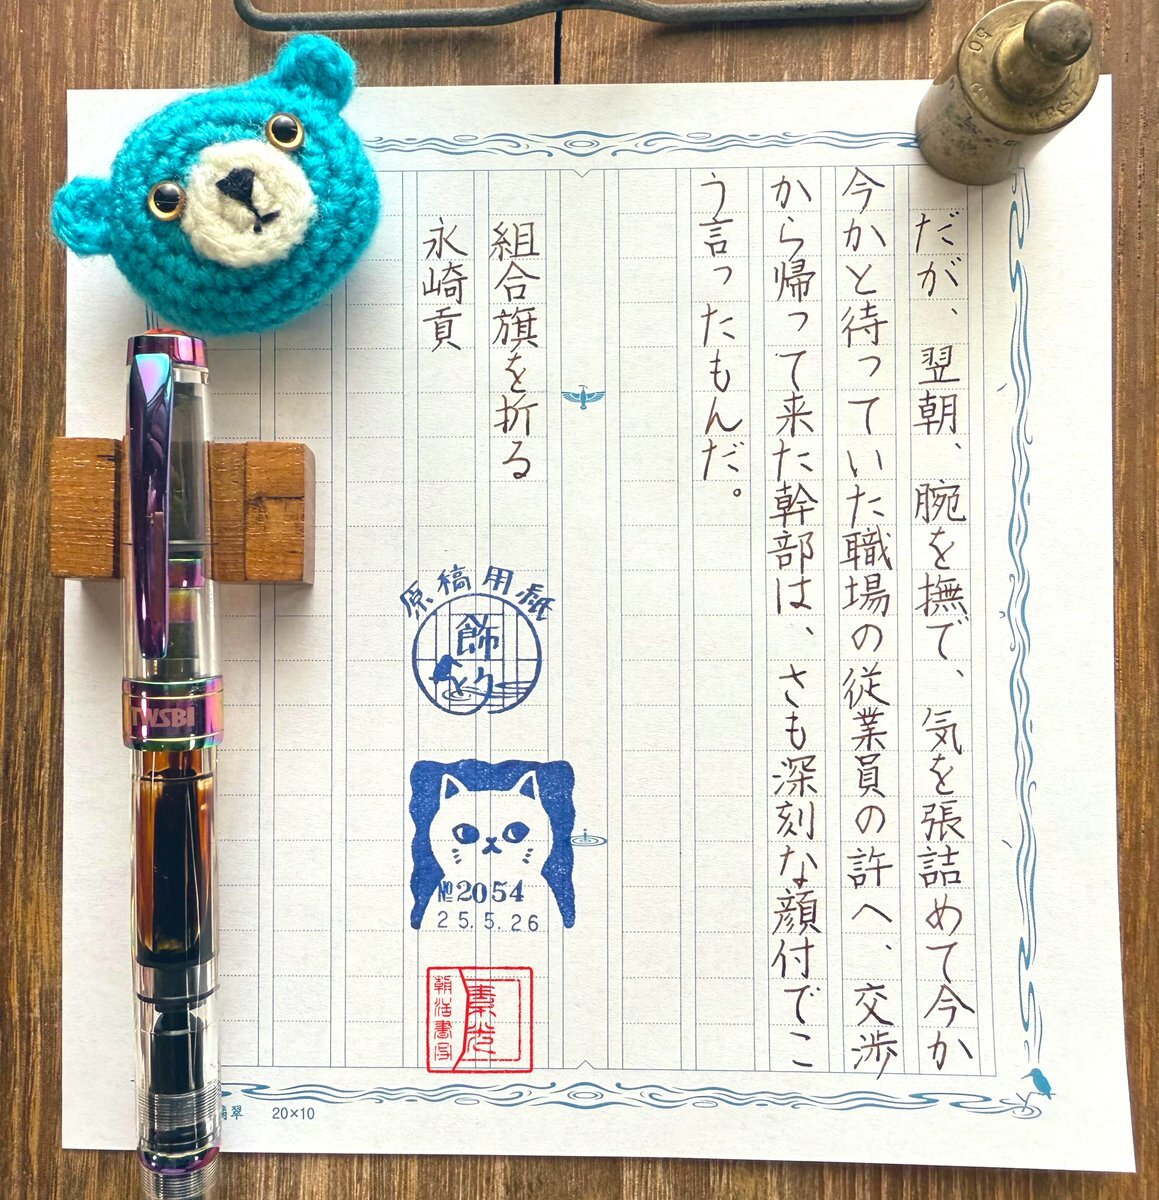 だが、翌朝、腕を撫で、気を張詰めて今か
今かと待っていた職場の従業員の許へ、交渉
から帰って来た幹部は、さも深刻な顔付でこ
う言ったもんだ。
組合旗を折る
永崎貢
原稿用紙
飾り
№2054
25.5.26
朝活書写
20×10
TWSBI
50